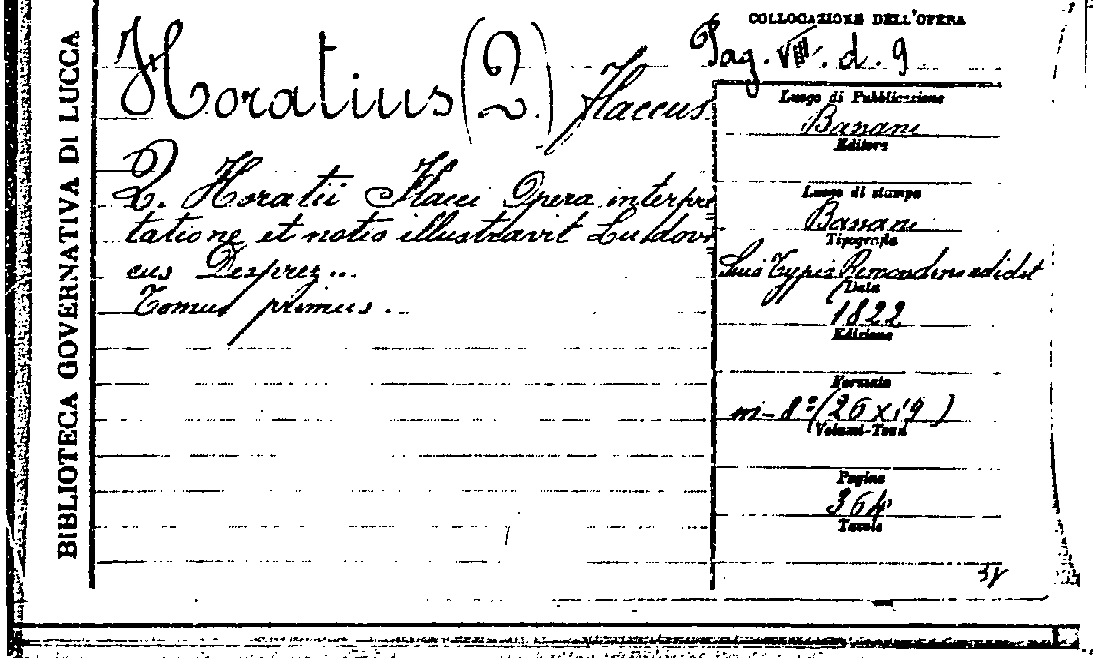 BIBLIOTECA GOVERNATIVA DI LUCCA
COLLOCAZIONE DELL'OPERA
Pag. VIII. d. 9
Horatius (Q.) Flaccus
Q. Horatii Flacci Opera interpre
tatione et notis illustravit Ludovi
cus Desprez...
Tomus primus.
Luogo di Pubblicazione
Bassani
Editore
Luogo di stampa
Bassani
Tipografia
Suis Typis Remondini edidit
Data
1822
Edizione
Formato
in-8º (26 x 19)
Volumi-Tomi
Pagine
364
Tavole